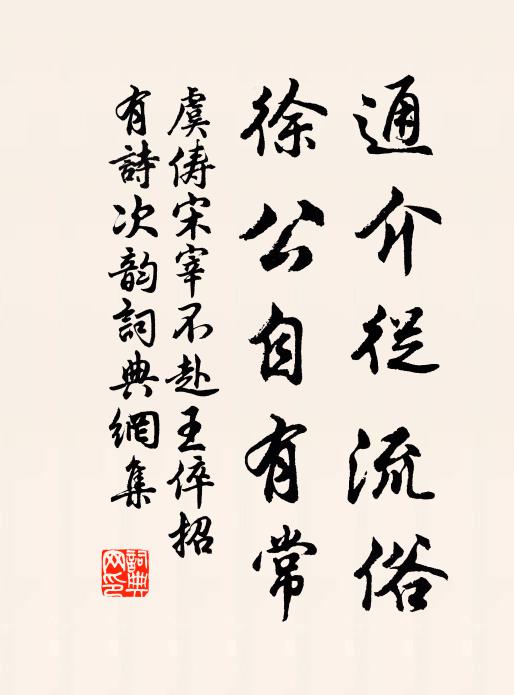 通介從流俗
徐公自有常
虞儔宋宰不赴王倅招
有詩次韵詞典網集
詞典网印